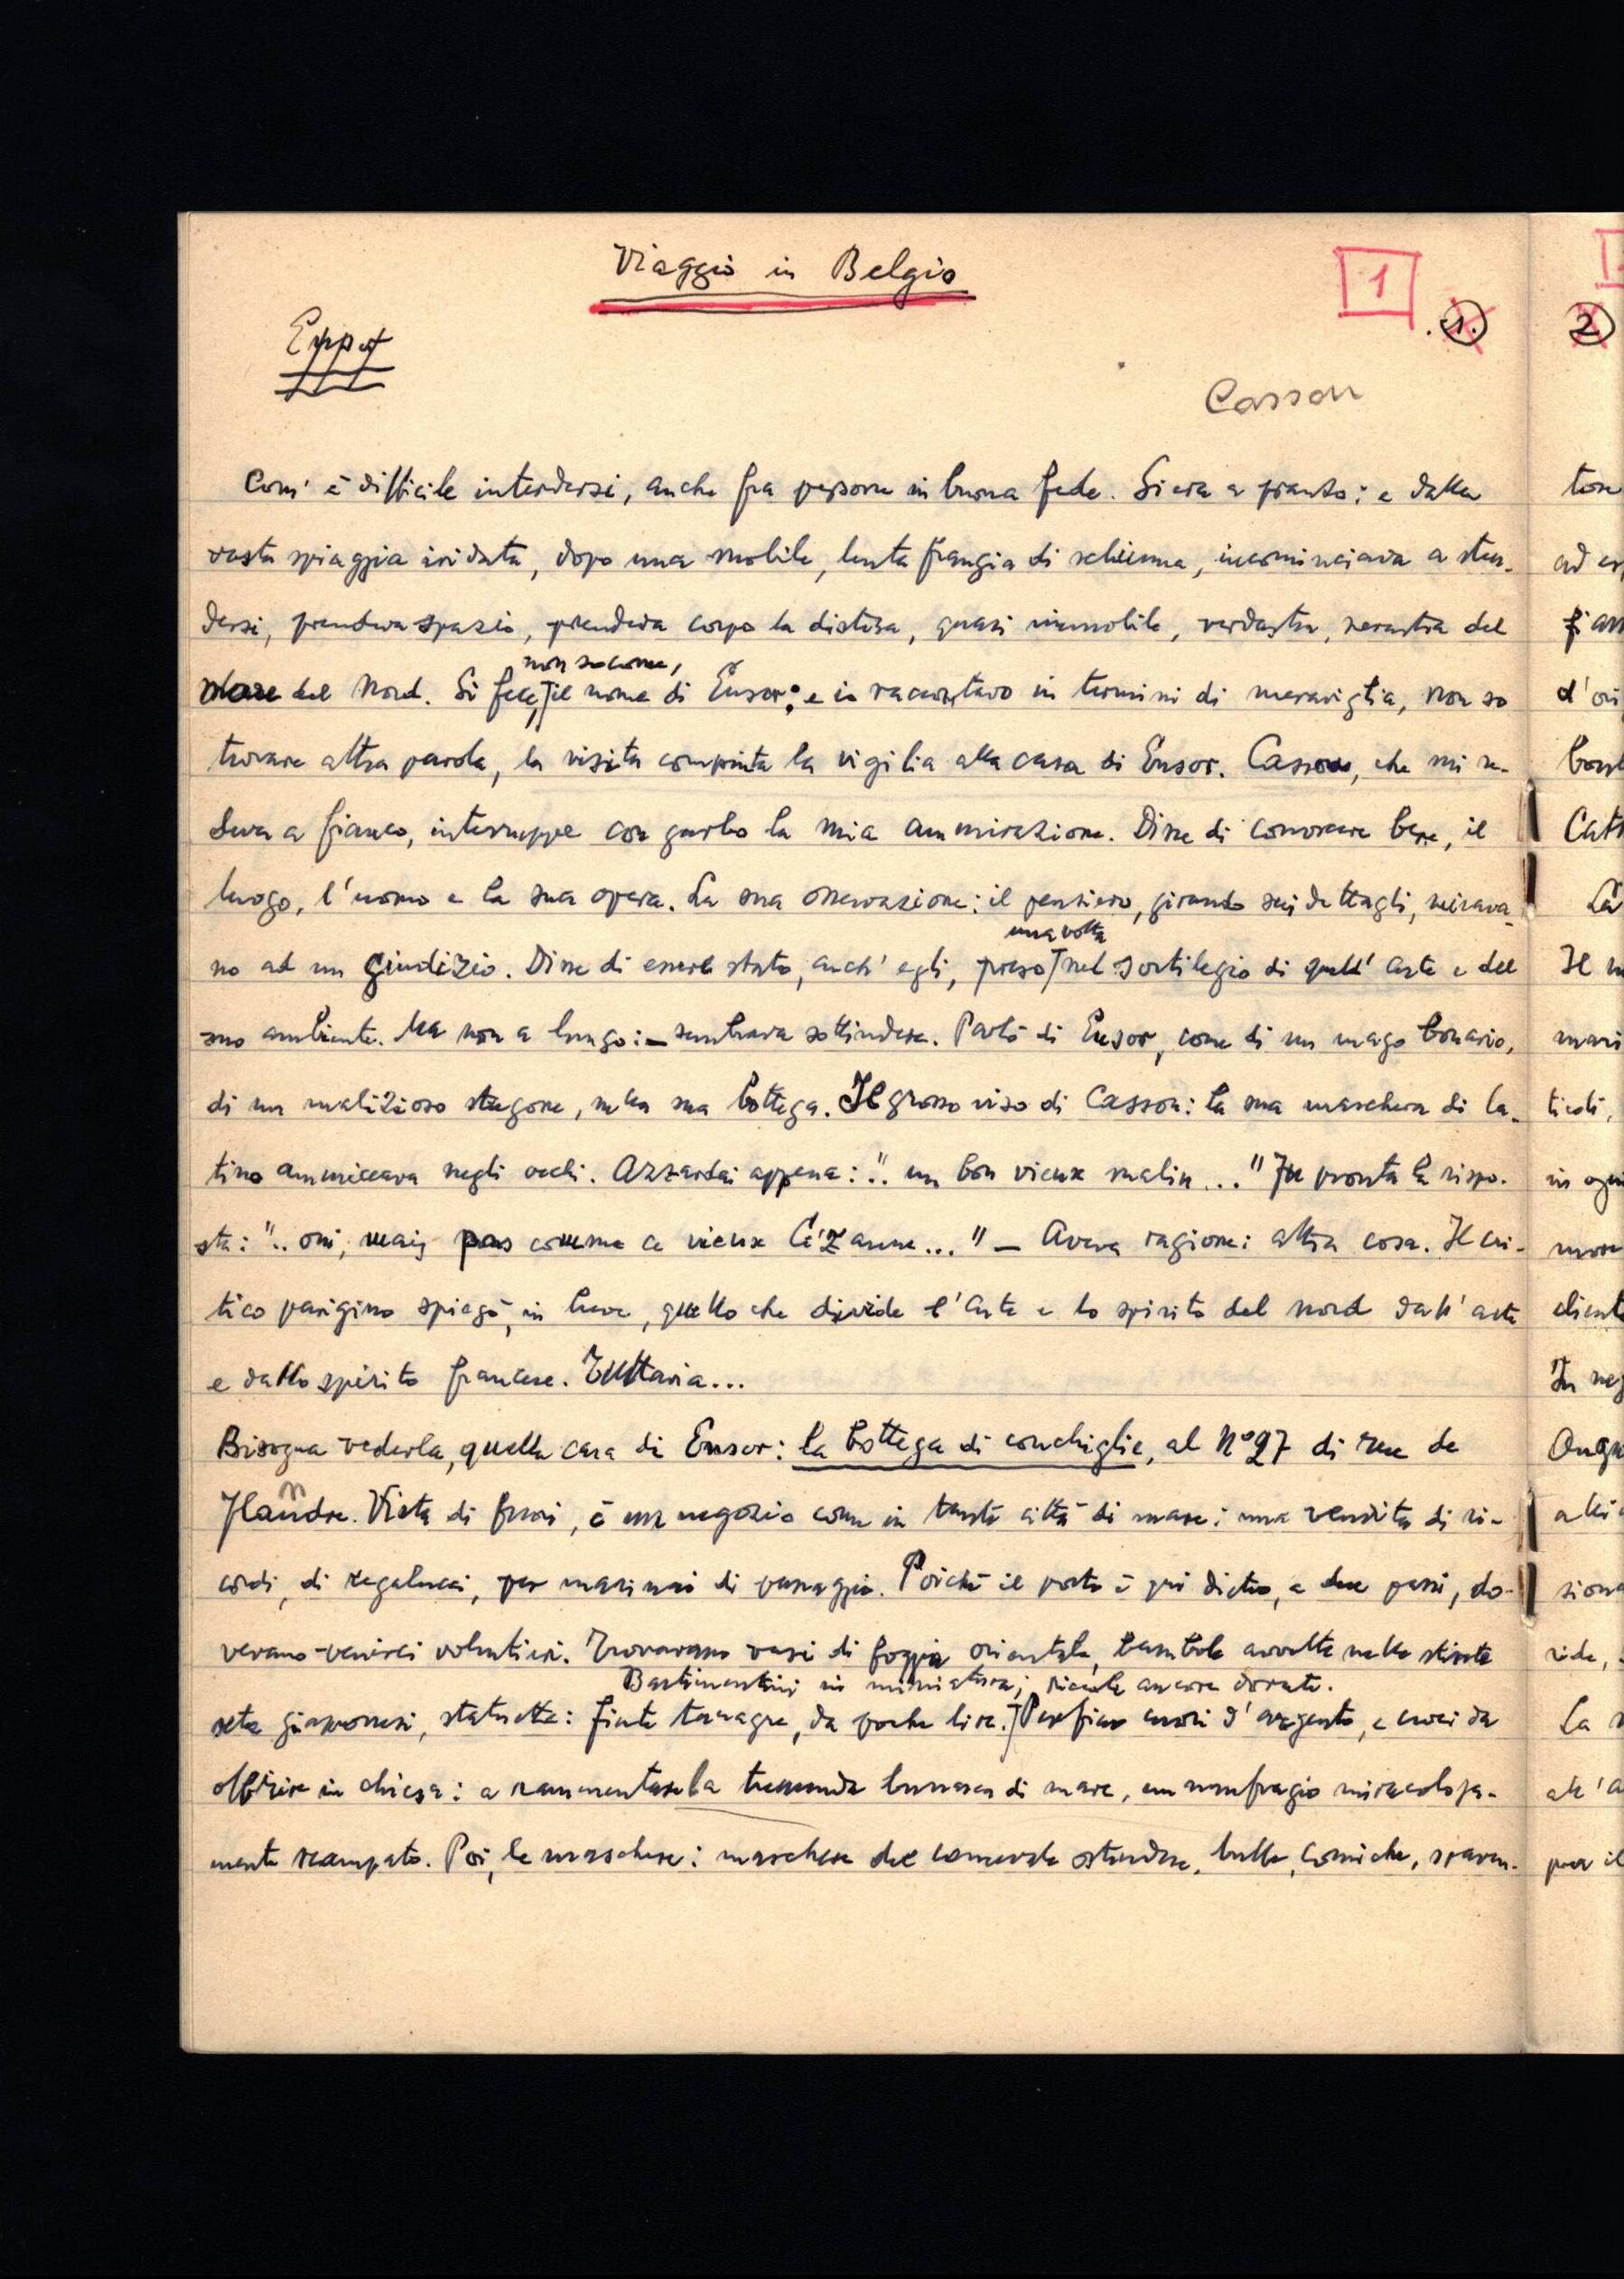 Viaggio in Belgio
1
.1.
2
Casson
Com' è difficile intendersi, anche fra persone in buona fede. Si era a pranzo: e dalla
vasta spiaggia iridata, dopo una mobile, lenta frangia di schiuma, incominciava a sten-
dersi, prendeva spazio, prendeva corpo la distesa, quasi immobile, verdastra, nerastra del
mare del Nord. Si fece, non so come, il nome di Ensor: e io raccontavo in termini di meraviglia, non so
trovare altra parola, la visita compiuta la vigilia alla casa di Ensor. Casson, che mi se-
deva a fianco, interruppe con garbo la mia ammirazione. Disse di conoscere bene, il
luogo, l'uomo e la sua opera. La sua osservazione: il pensiero, girando sui dettagli, mirava-
no ad un giudizio. Disse di essere stato, anch' egli, preso una volta nel sortilegio di quell' arte e del
suo ambiente. Ma non a lungo: – sembrava sottindere. Parlò di Ensor, come di un mago bonario,
di un malizioso stregone, nella sua bottega. Il grosso viso di Casson: la sua maschera di la-
tino ammiccava negli occhi. Azzardai appena: ".. un bon vieux malin..." Fu pronta la rispo-
sta: ".. oui, mais pas comme ce vieux Cézanne..." – Aveva ragione: altra cosa. Il cri-
tico parigino spiegò, in breve, quello che divide l'arte e lo spirito del nord dall' arte
e dallo spirito francese. Tuttavia...
Bisogna vederla, quella casa di Ensor: la bottega di conchiglie, al N° 27 di rue de
Flandre. Vista di fuori, è un negozio come in tante città di mare: una vendita di ri-
cordi, di regalucci, per marinai di passaggio. Poiché il porto è qui dietro, a due passi, do-
vevano venirci volentieri. Trovavano vasi di foggia orientale, bambole avvolte nelle strette
Bastimentini in miniatura; icone ancora dorate.
sete giapponesi, statuette: finte tanagre, da poche lire. Perfino cuori d'argento, e croci da
offrire in chiesa: a rammentare la tremenda burrasca di mare, un naufragio miracolosa-
mente scampato. Poi, le maschere: maschere del carnevale ostendese, bulle, comiche, spaven-